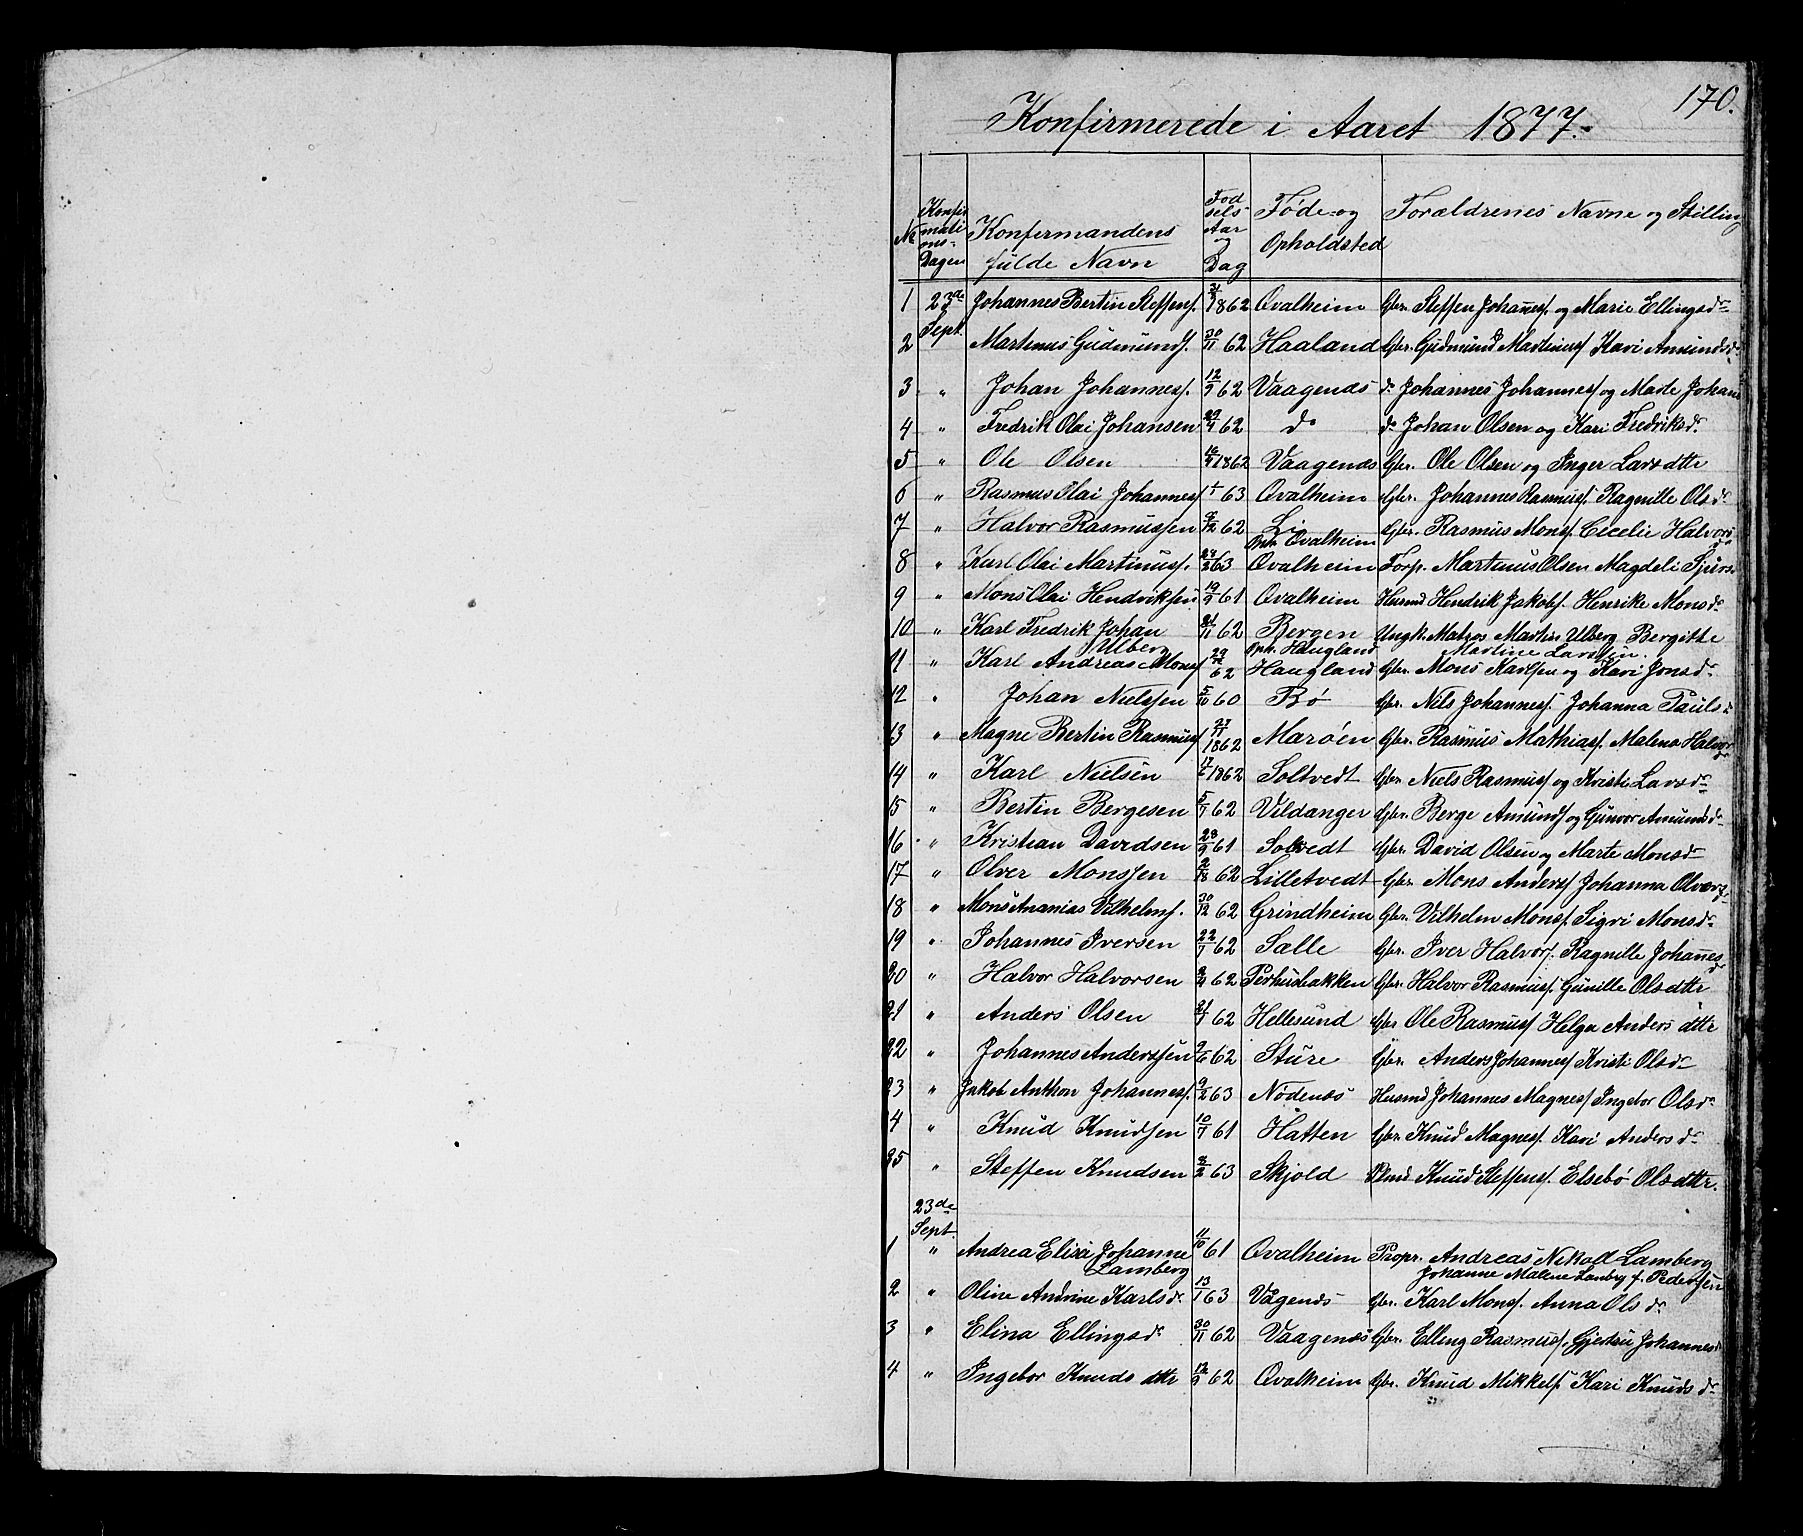 170.
Konfirmerede i Aaret 1877.
No Konfirmations-Dagen Konfirmandens fulde Navn Fødsels Aar og Dag Føde- og Opholdsted Forældrenes Navne og Stilling
1 23de Sept. Johannes Bertin Steffens. 1862 Ovalheim Gbr. Steffen Johaness. og Marie Ellingsdr
2 Martinus Gudmunds. 30/11 62 Haaland Gbr. Gudmund Martinius Kari Amundsd.
3 " Johan Johanness. 12/9 62 Vaagenæs do Johannes Johanness og Marte Johans
4 " Fredrik Olai Johansen 29/4 62 do do Johan Olsen og Kari Fredriksdr.
5 " Ole Olsen 1862 Vaagenæs Gbr. Ole Olsen og Inger Larsdttr
6 " Rasmus Olai Johanness 1/1 63 Ovalheim Gbr. Johannes Rasmuss. Ragnille Olsdr
7 " Halvor Rasmussen /12 62 Li Oph. Ovalheim Gbr. Rasmus Mons. Cecelie Halvorsdr
8 " Karl Olai Martinuss. 63 Ovalheim Forp. Martinus Olsen Magdeli Sjurs.
9 " Mons Olai Hendriksen 19/9 61 Ovalheim Husmd Hendrik Jakobs. Henrike Monsdr
10 " Karl Fredrik Johan Ulberg 21/11 62 Bergen Oph. Haugland Ungk. Matros Martin Ulberg Bergitte Martine Larssen.
11 " Karl Andreas Mons 62 Haugland Gbr. Mons Karlsen og Kari Jonsdr.
12 " Johan Nielssen 5/10 60 Bø Gbr. Nils Johanness. Johanna Pauls.
13 " Magne Bertin Rasmuss 27/11 1862 Marøen Gbr. Rasmus Mathias. Malena Halvorsdr
14 " Karl Nielsen 17/6 1862 Soltvedt Gbr. Niels Rasmuss og Kristi Larsdr
15 " Bertin Bergesen 5/7 62 Vildanger Gbr. Berge Amunds og Gunvor Amundsdr
16 " Kristian Davidsen 28/9 61 Soltvedt Gbr. David Olsen og Marte Monsdr
17 " Olver Monssen 62 Lilletvedt Gbr. Mons Anderss Johanna Olversdr
18 " Mons Ananias Vilhelms. 30/12 62 Grindheim Gbr. Vilhelm Monss. Sigri Monsdr
19 " Johannes Iversen 22/7 62 Salle Gbr. Iver Halvors. Ragnille Johannesdr
20 " Halvor Halvorsen 62 Perhusbakken Gbr. Halvor Rasmuss. Gunille Olsdttr
21 " Anders Olsen 62 Hellesund Gbr Ole Rasmuss Helga Anders dttr
22 " Johannes Anderssen 9/6 62 Sture Gbr. Anders Johanness Kristi Olsdr
23 " Jakob Anthon Johanness. 9/2 63 Nødenæs Husmd Johannes Magness Ingebor Olsdr
4 " Knud Knudsen 10/7 61 Hatten Gbr. Knud Magness. Kari Anders dr
25 " Steffen Knudsen 63 Skjold Knud Steffens. Elsebø Olsdttr.
23de Sept.
1 " Andrea Elisa Johanne Lamberg 11/10 61 Ovalheim Propr. Andreas Nikod Lamberg Johanne Malene Lamberg f. Pedersen
2 " Oline Andrine Karlsdr. 13/1 63 Vågenæs Gbr. Karl Monss. Anna Ols dr
3 " Elina Ellingsdr 30/11 62 Vaagenæs Gbr. Elling Rasmuss. Gjertru Johannesd
4 " Ingebor Knuds dttr 12/9 62 Ovalheim Gbr. Knud Mikkels. Kari Knuds dr